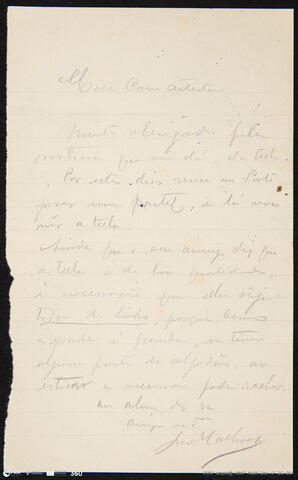 Meu Caro Artista
Muito obrigado pela
noticia que me dá, da tela.
Por estes dias vou ao Porto
fazer um pastel, e lá
a tela.
Ainda que o seu amigo diz que
a tela é de boa qualidade,
é necessario que ella seja
toda de linho, porque, como
a grade é grande, se tiver
alguma parte de algodão, ao
esticar a mesma pode rachar.
um abraço do seu
amigo
José Malhoa
360